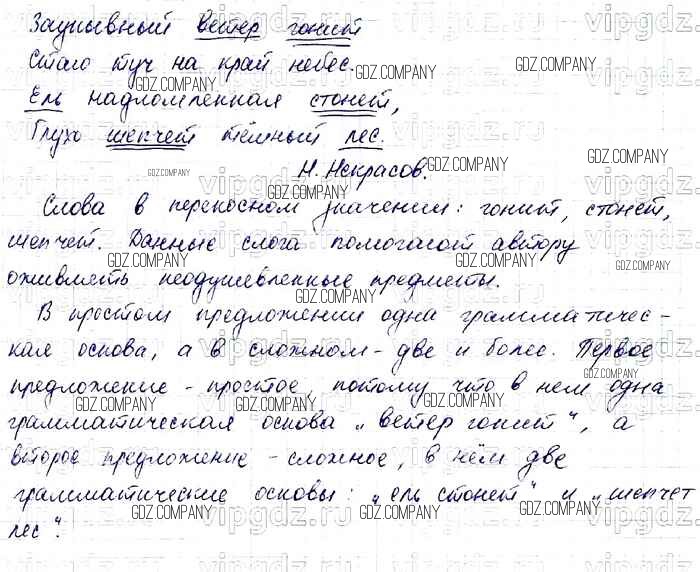 Заунывный ветер гонит
Стаю туч на край небес.
Ель надломленная стонет,
Глухо шепчет тёмный лес.
Н. Некрасов.
Слова в переносном значении: гонит, стонет,
шепчет. Данные слова помогают автору
оживлять неодушевленные предметы.
В простом предложении одна грамматичес-
кая основа, а в сложном - две и более. Первое
предложение - простое, потому что в нем одна
грамматическая основа „ветер гонит", а
второе предложение - сложное, в нём две
грамматические основы: „ель стонет" и „шепчет
лес".
GDZ.COMPANY
vipgdz.ru